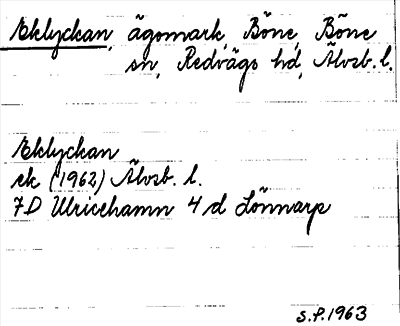 Eklyckan, ägomark, Böne, Böne
sn, Redvägs hd, Älvsb. l.
Eklyckan
ek (1962) Älvsb. l.
7D Ulricehamn 4 d Lönnarp
S.P. 1963